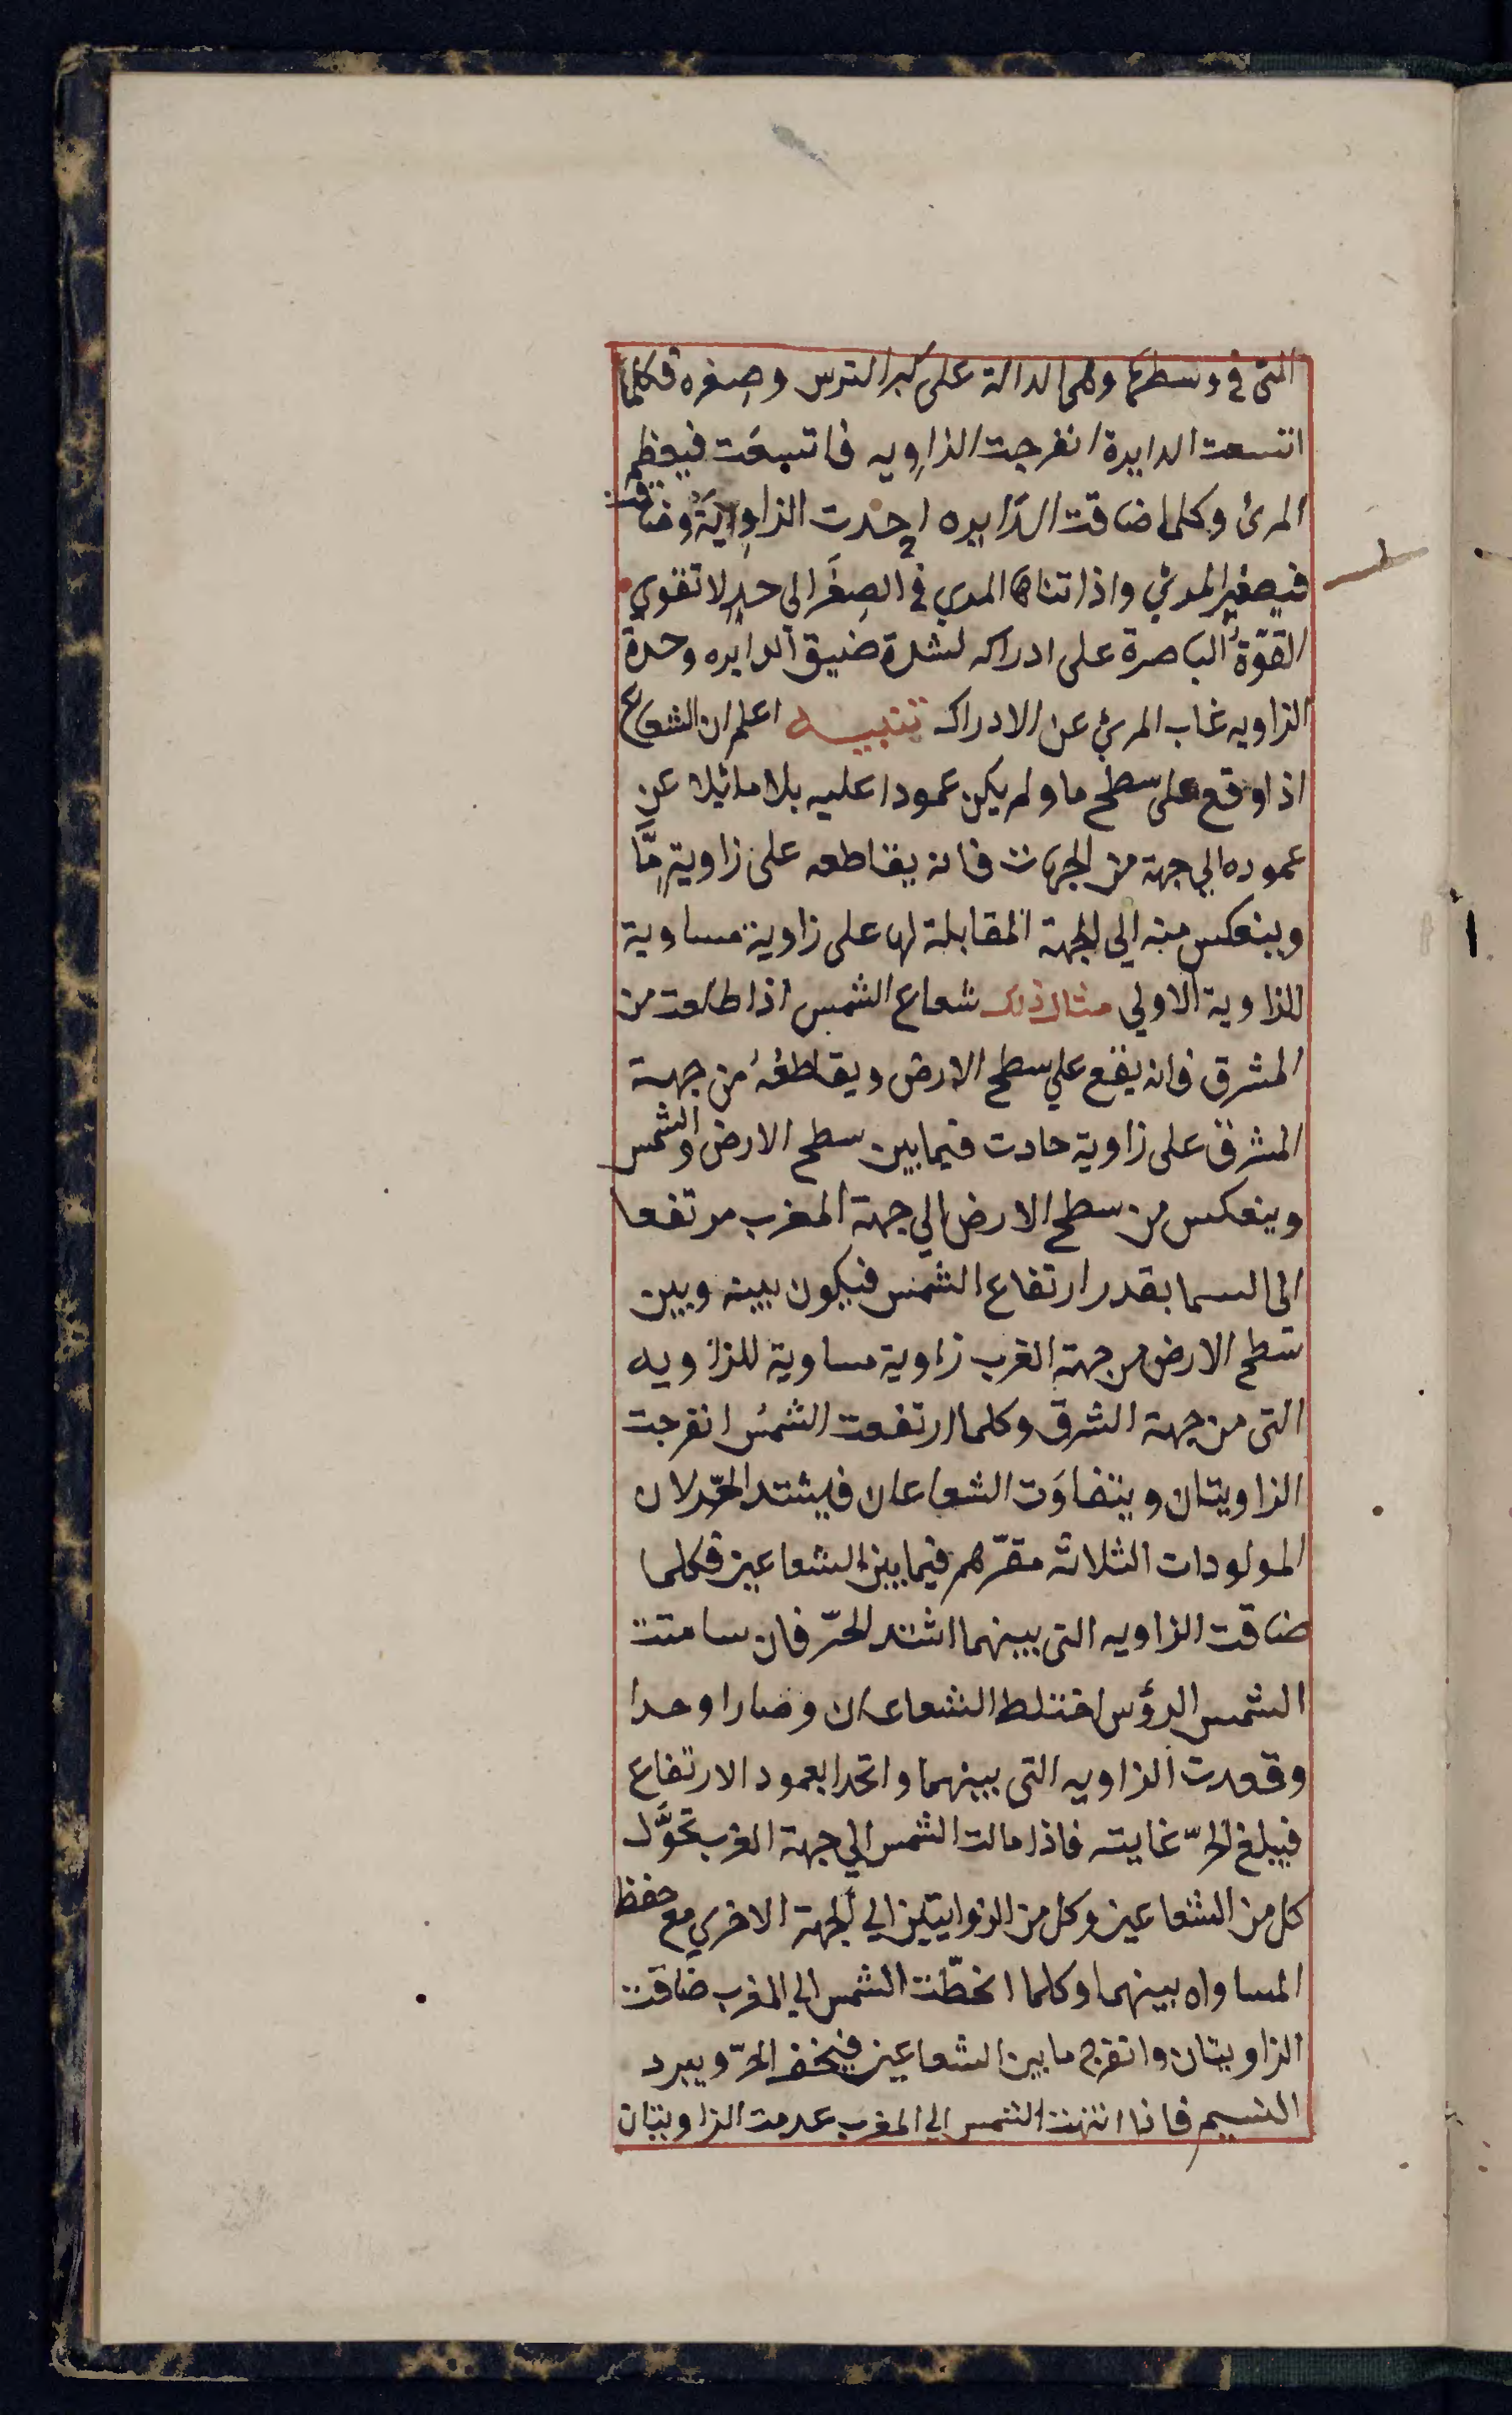 التى فى وسطها وهى الدالة على كبر الترس وصغره فكلما
اتسعت الدايرة انفرجت الزاويه فاتسعت فيعظم
المرئ وكلما ضاقت الدايره احدت الزاوية وضاقت
فيصغر المرئي واذا تناها المرئ في الصغر الى حد لا تقوي
القوّة الباصرة على ادراكه لشدة ضيق الدايره وحدة
الزاويه غاب المرئي عن الادراك تنبيه اعلم ان الشعاع
اذا وقع على سطح ما ولم يكن عمودا عليه بلا مائيلا عن
عموده الي جهة من الجهات فانه يقاطعه على زاوية مّا
وينعكس منه الي الجهة المقابلة لها على زاوية مساوية
للزاوية الاولي مثال ذلك شعاع الشمس اذا طلعت من
المشرق فانه يقع علي سطح الارض ويقاطعهُ من جهة
المشرق على زاوية حادت فيما بين سطح الارض والشمس
وينعكس من سطح الارض الي جهة المغرب مرتفعا
الى السما بقدر ارتفاع الشمس فيكون بينه وبين
سطح الارض من جهة الغرب زاوية مساوية للزاويه
التى من جهة الشرق وكلما ارتفعت الشمس انفرجت
الزاويتان ويتفاوَت الشعاعان فيشتد الحّر لان
المولودات الثلاثه مقرّهم فيما بين الشعاعين فكلما
ضاقت الزاويه التى بينهما اشتد الحرّ فان سامتت
الشمس الرؤس اختلط الشعاعان وصارا وحدا
وقعدت الزاويه التى بينهما واتحدا بعمود الارتفاع
فيبلغ الحرّ غايته فاذا مالت الشمس الي جهة الغرب تحوَّل
كل من الشعاعين وكل من الزوايتين الي الجهة الاخري مع حفظ
المساواه بينهما وكلما انحطّت الشمس الي المغرب ضاقت
الزاويتان وانفرج ما بين الشعاعين فيخف الحرّ ويبرد
النسيم فاذا انتهت الشمس الي المغرب عدمت الزاويتان